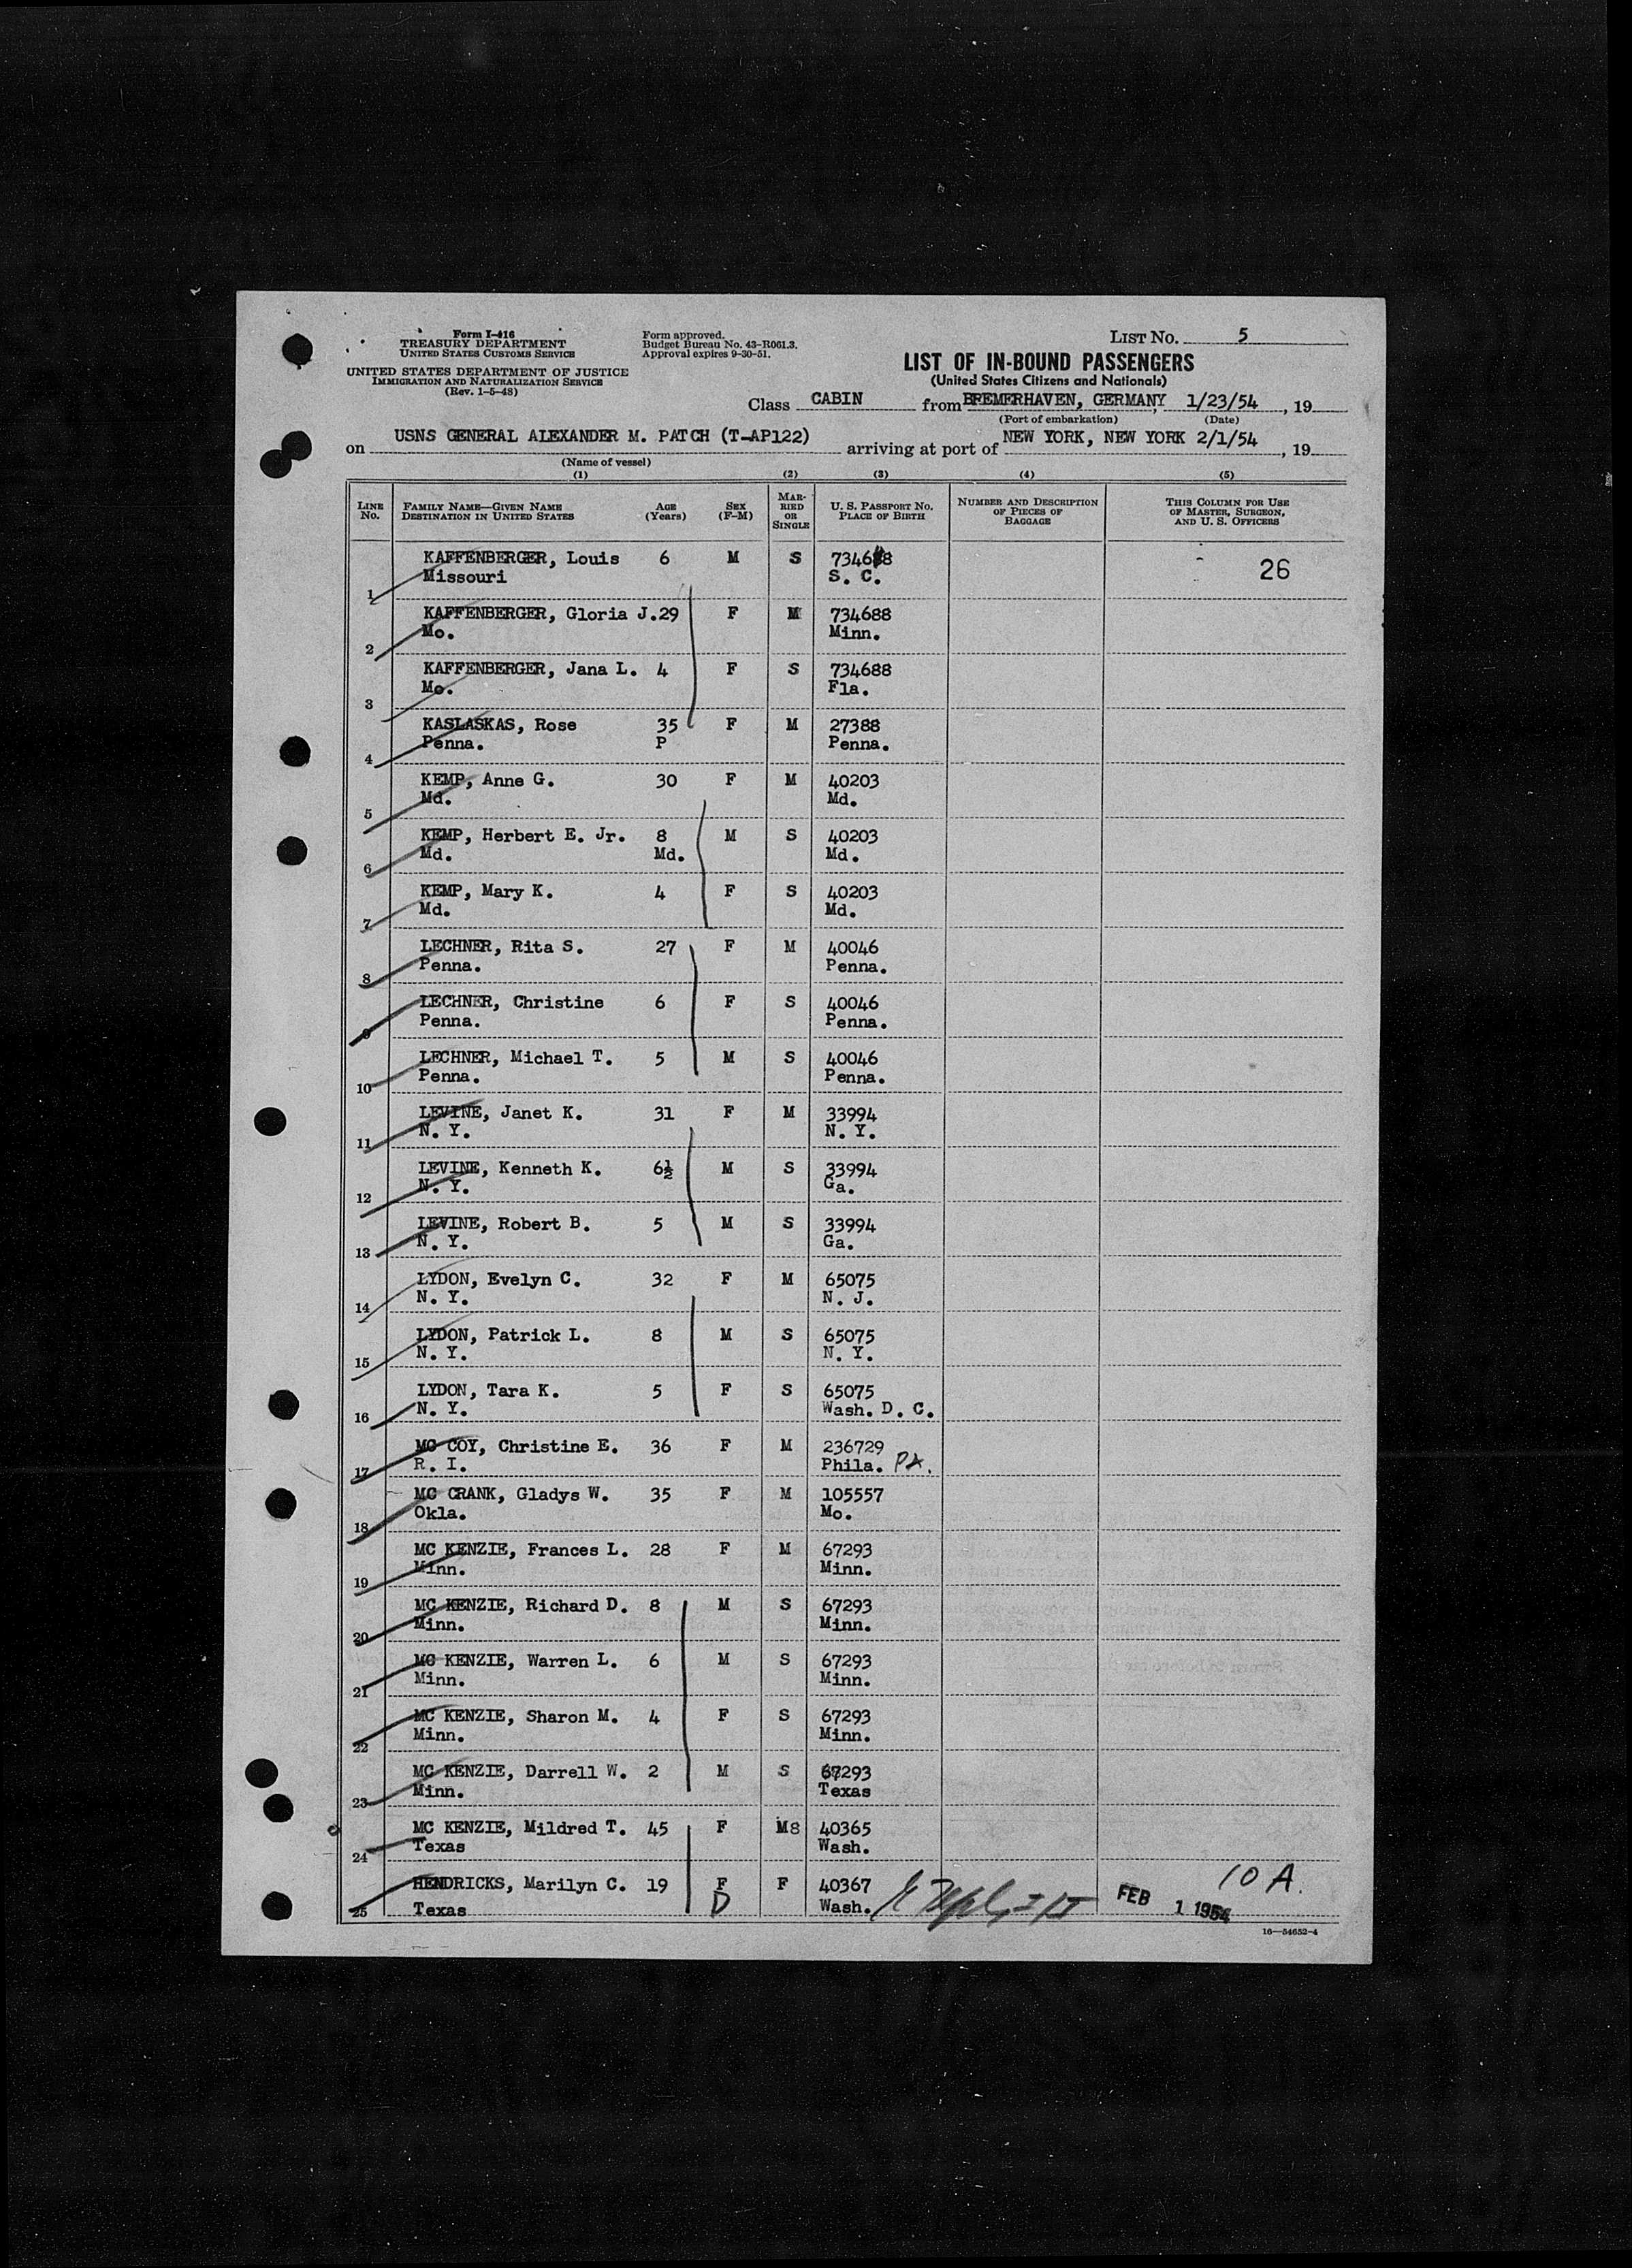 Form I-416
TREASURY DEPARTMENT
UNITED STATES CUSTOMS SERVICE
UNITED STATES DEPARTMENT OF JUSTICE
IMMIGRATION AND NATURALIZATION SERVICE
(Rev. 1-5-48)
Form approved.
Budget Bureau No. 43-R061.3.
Approval expires 9-30-51.
LIST NO. 5
LIST OF IN-BOUND PASSENGERS
(United States Citizens and Nationals)
Class CABIN from BREMERHAVEN, GERMANY, 1/23/54, 19
(Port of embarkation) (Date)
on USNS GENERAL ALEXANDER M. PATCH (T-AP122) arriving at port of NEW YORK, NEW YORK 2/1/54, 19
(Name of vessel)
(1) (2) (3) (4) (5)
LINE NO. FAMILY NAME—GIVEN NAME DESTINATION IN UNITED STATES AGE (Years) SEX (F-M) MARRIED OR SINGLE U. S. PASSPORT NO. PLACE OF BIRTH NUMBER AND DESCRIPTION OF PIECES OF BAGGAGE THIS COLUMN FOR USE OF MASTER, SURGEON, AND U. S. OFFICERS
KAFFENBERGER, Louis 6 M S 734688 26
1 Missouri S. C.
KAFFENBERGER, Gloria J. 29 F M 734688
2 Mo. Minn.
KAFFENBERGER, Jana L. 4 F S 734688
3 Mo. Fla.
KASLASKAS, Rose 35 F M 27388
4 Penna. P Penna.
KEMP, Anne G. 30 F M 40203
5 Md. Md.
KEMP, Herbert E. Jr. 8 M S 40203
6 Md. Md. Md.
KEMP, Mary K. 4 F S 40203
7 Md. Md.
LECHNER, Rita S. 27 F M 40046
8 Penna. Penna.
LECHNER, Christine 6 F S 40046
9 Penna. Penna.
LECHNER, Michael T. 5 M S 40046
10 Penna. Penna.
LEVINE, Janet K. 31 F M 33994
11 N. Y. N. Y.
LEVINE, Kenneth K. 6½ M S 33994
12 N. Y. Ga.
LEVINE, Robert B. 5 M S 33994
13 N. Y. Ga.
LYDON, Evelyn C. 32 F M 65075
14 N. Y. N. J.
LYDON, Patrick L. 8 M S 65075
15 N. Y. N. Y.
LYDON, Tara K. 5 F S 65075
16 N. Y. Wash. D. C.
MC COY, Christine E. 36 F M 236729
17 R. I. Phila. PA.
MC CRANK, Gladys W. 35 F M 105557
18 Okla. Mo.
MC KENZIE, Frances L. 28 F M 67293
19 Minn. Minn.
MC KENZIE, Richard D. 8 M S 67293
20 Minn. Minn.
MC KENZIE, Warren L. 6 M S 67293
21 Minn. Minn.
MC KENZIE, Sharon M. 4 F S 67293
22 Minn. Minn.
MC KENZIE, Darrell W. 2 M S 67293
23 Minn. Texas
MC KENZIE, Mildred T. 45 F M8 40365
24 Texas Wash.
HENDRICKS, Marilyn C. 19 F F 40367 10 A.
25 Texas D Wash. FEB 1 1954
16—54652-4